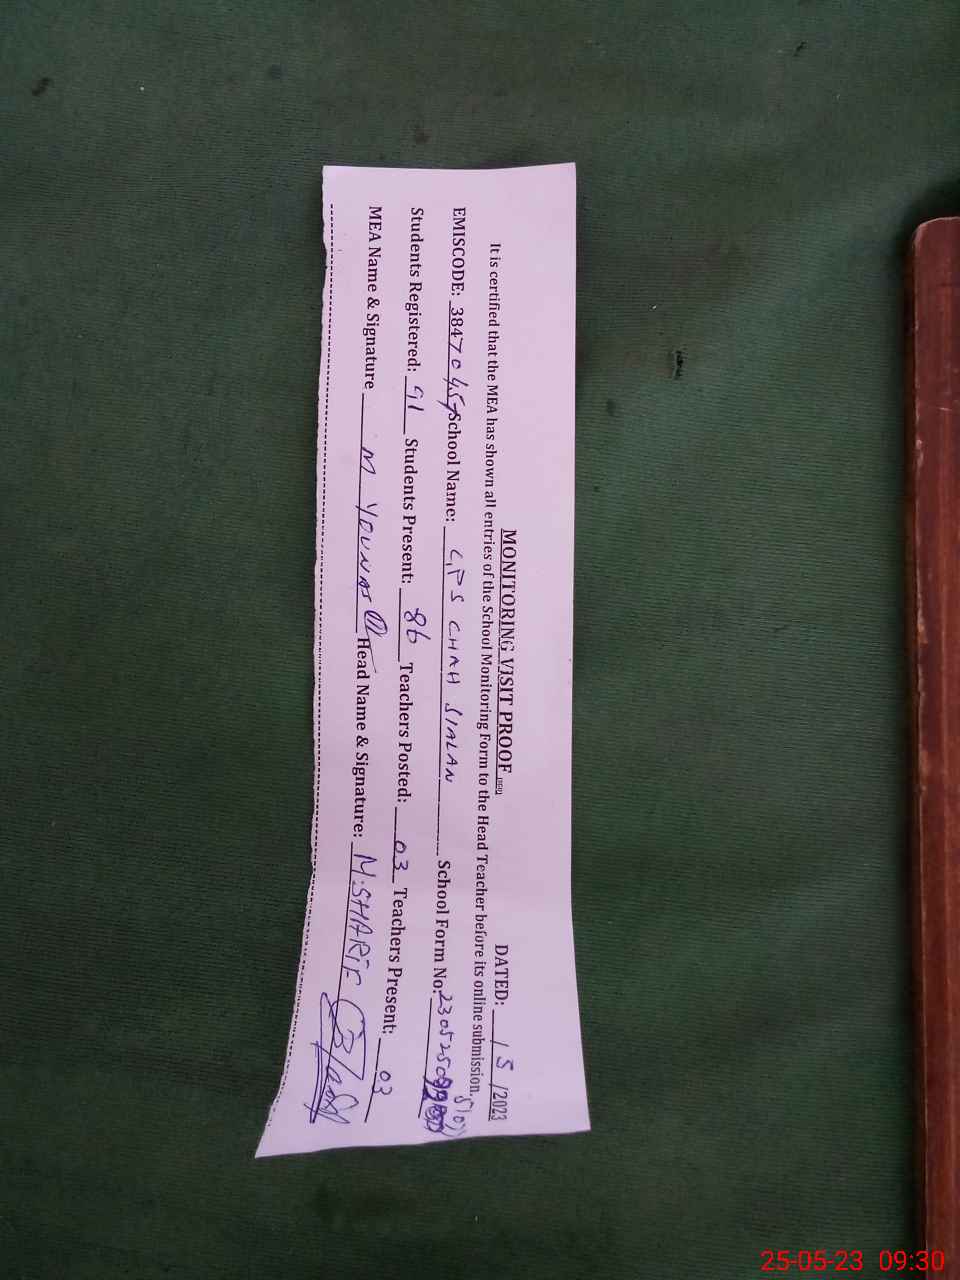 MONITORING VISIT PROOF
DATED: / 5 /2023
It is certified that the MEA has shown all entries of the School Monitoring Form to the Head Teacher before its online submission.
EMISCODE: 38470457 School Name: GPS CHAH SIALAN School Form No: 23052509
Students Registered: 91 Students Present: 86 Teachers Posted: 03 Teachers Present: 03
MEA Name & Signature M YOUNAS Head Name & Signature: M.SHARIF
25-05-23 09:30